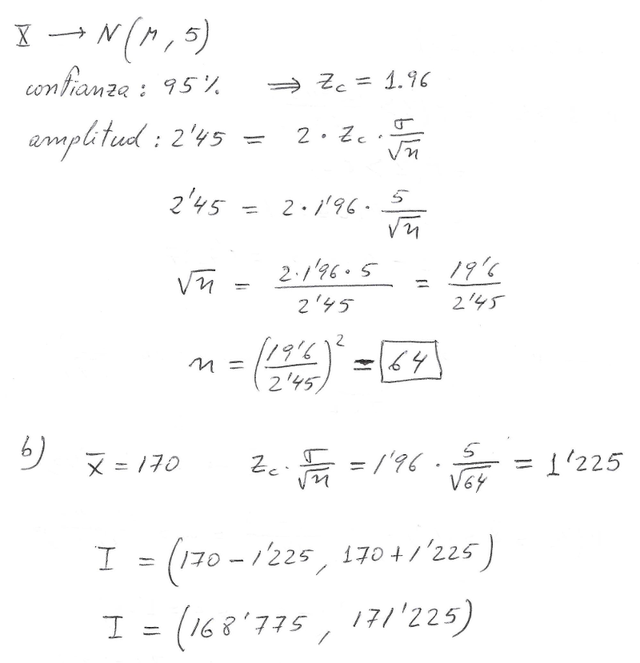 X → N(μ, 5)
confianza: 95% ⇒ Zc = 1.96
amplitud: 2'45 = 2 · Zc · σ/√n
2'45 = 2 · 1'96 · 5/√n
√n = (2·1'96·5)/2'45 = 19'6/2'45
n = (19'6/2'45)² = 64
b) x̄ = 170 Zc · σ/√n = 1'96 · 5/√64 = 1'225
I = (170 - 1'225, 170 + 1'225)
I = (168'775, 171'225)